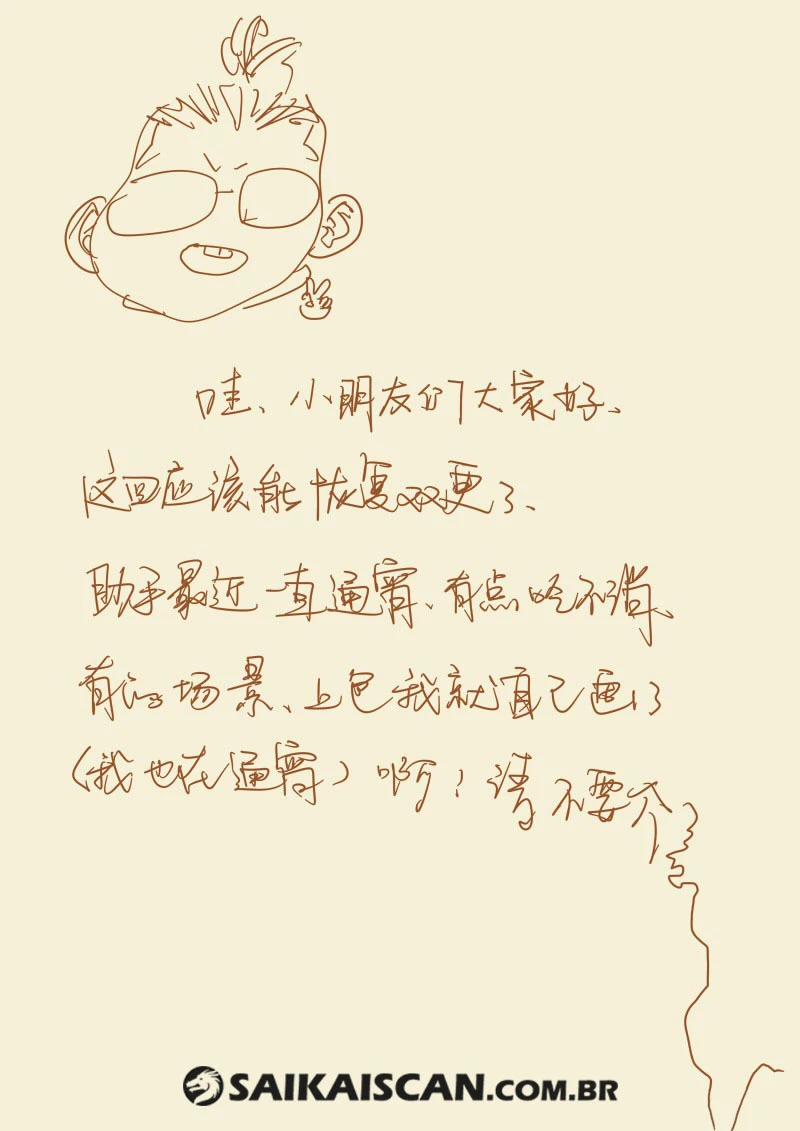 哇、小朋友们大家好、
这回应该能恢复双更了、
助手最近一直通宵、有点吃不消、
有的场景、上色我就自己画了
（我也在通宵）啊！请不要介
SAIKAISCAN.COM.BR